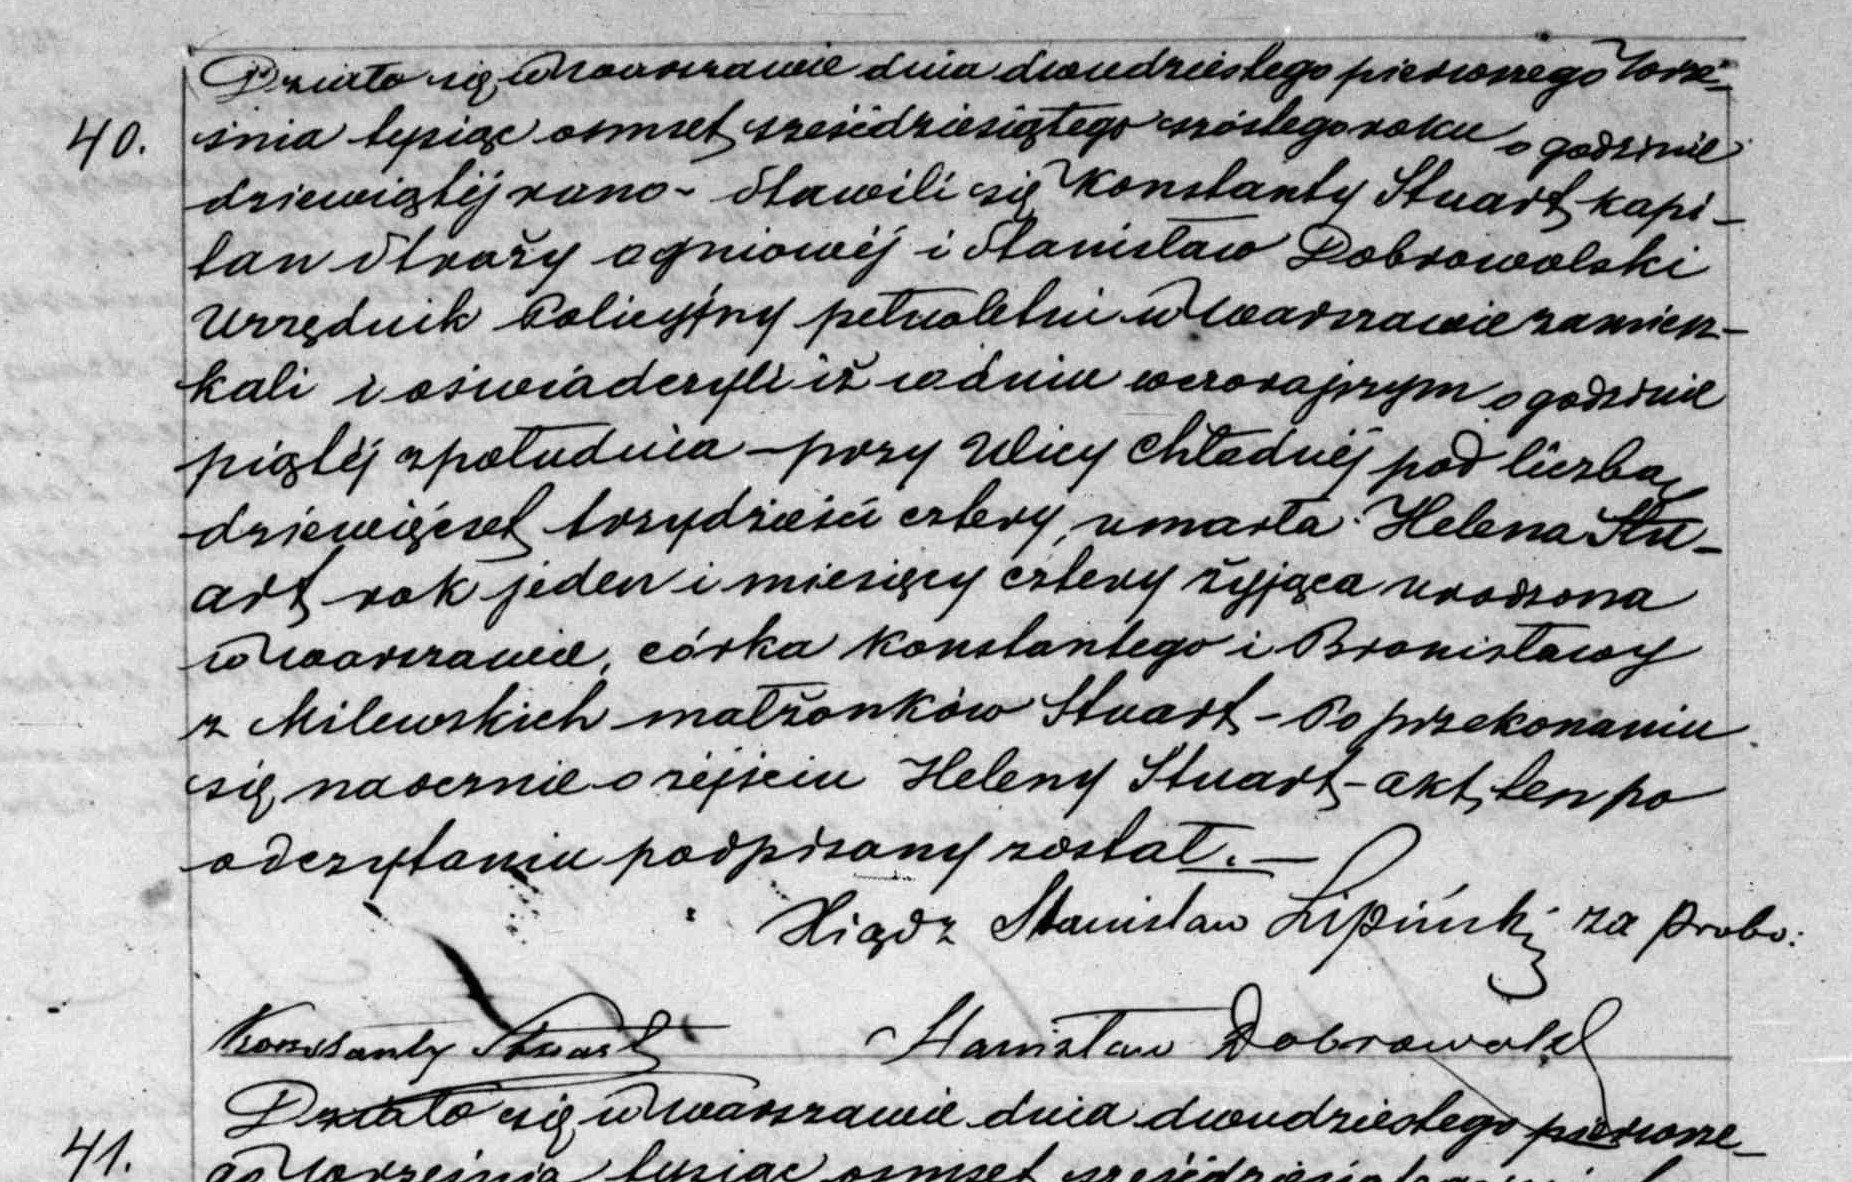 Działo się w Warszawie dnia dwudziestego pierwszego Wrze-
40.
śnia tysiąc osmset sześćdziesiątego szóstego roku o godzinie
dziewiątéj rano - Stawili się Konstanty Stuart kapi-
tan Straży ogniowéj i Stanisław Dobrowolski
Urzędnik Policyjny pełnoletni w Warszawie zamiesz-
kali i oświadczyli iż w dniu wczorajszym o godzinie
piątéj z południa - przy Ulicy Chładnéj pod liczbą
dziewięćset trzydzieści cztery, umarła Helena Stu-
art rok jeden i miesięcy cztery żyjąca urodzona
w Warszawie, córka Konstantego i Bronisławy
z Milewskich małżonków Stuart - Po przekonaniu
się naocznie o zejściu Heleny Stuart - akt ten po
odczytaniu podpisany został. —
Xiądz Stanisław Lipiński za Probo:
Konstanty Stuart Stanisław Dobrowolski
Działo się w Warszawie dnia dwudziestego pierwsze-
41.
go Września tysiąc osmset